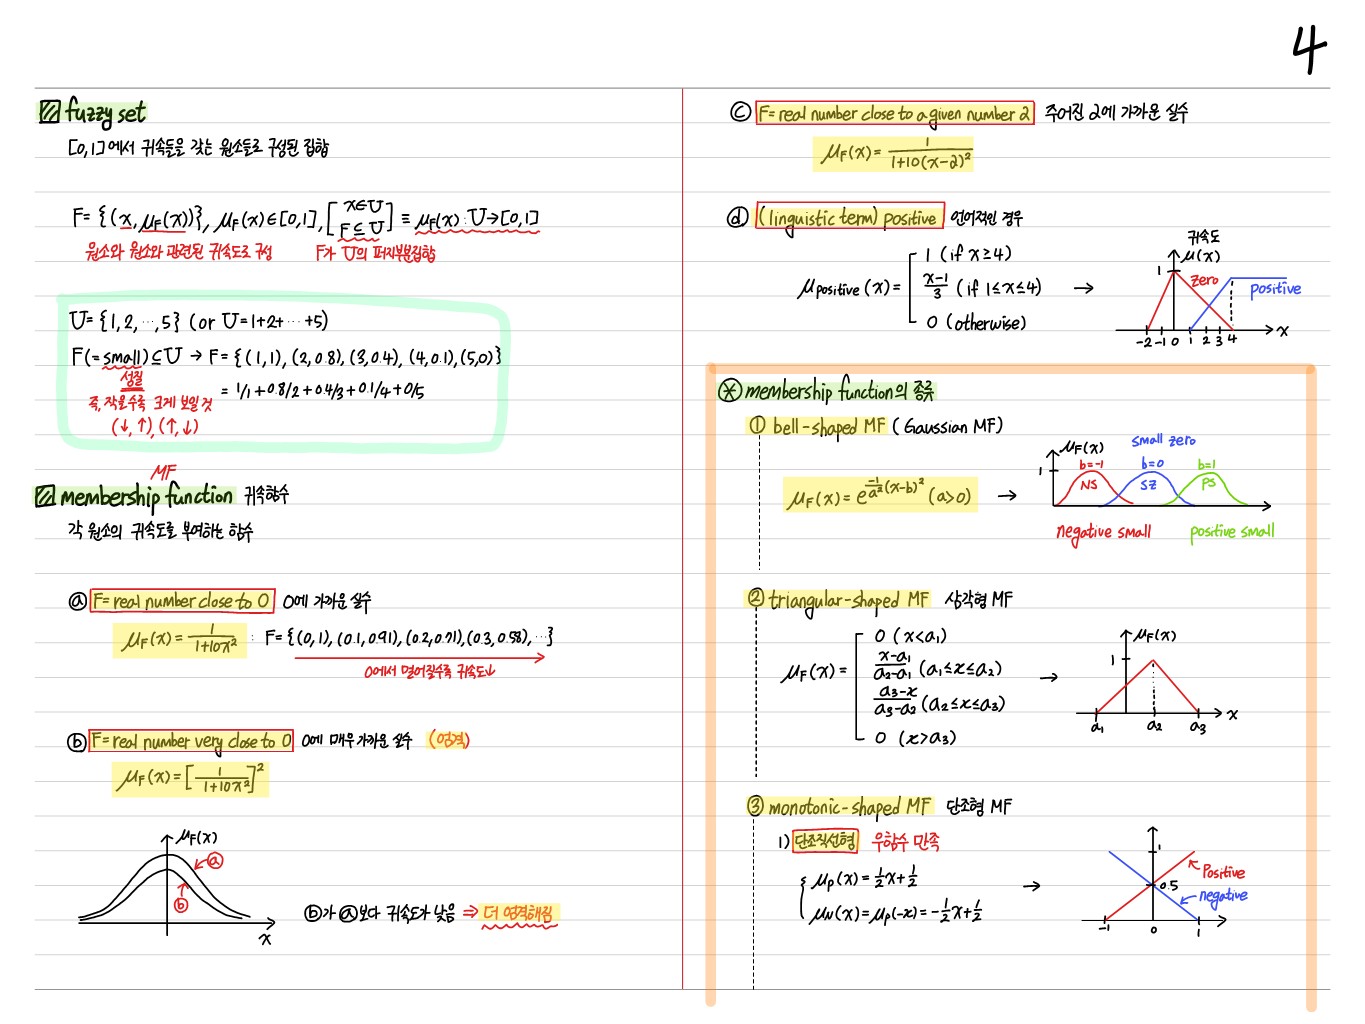 4
fuzzy set
[0,1]에서 귀속들을 갖는 원소들로 구성된 집합
F={(x, μF(x))}, μF(x)∈[0,1], [x∈U F⊆U] ≡ μF(x) : U→[0,1]
원소와 원소와 관련된 귀속도로 구성 F가 U의 퍼지부분집합
U={1,2,…,5} (or U=1+2+…+5)
F(=small)⊆U → F={(1,1), (2,0.8), (3,0.4), (4,0.1), (5,0)}
성질
= 1/1+0.8/2+0.4/3+0.1/4+0/5
즉, 작을수록 크게 보일 것
(↓,↑), (↑,↓)
MF
membership function 귀속함수
각 원소의 귀속도로 부여하는 함수
ⓐ F=real number close to 0 0에 가까운 실수
μF(x)=1/(1+10x²) : F={(0,1), (0.1,0.91), (0.2,0.71), (0.3,0.58), …}
0에서 멀어질수록 귀속도↓
ⓑ F=real number very close to 0 0에 매우 가까운 실수 (엄격)
μF(x)=[1/(1+10x²)]²
μF(x)
ⓐ
ⓑ
x
ⓑ가 ⓐ보다 귀속도가 낮음 ⇒ 더 엄격해짐
ⓒ F=real number close to a given number 2 주어진 2에 가까운 실수
μF(x)=1/(1+10(x-2)²)
ⓓ (linguistic term) positive 언어적인 경우
μpositive(x)=
1 (if x≥4)
(x-1)/3 (if 1≤x≤4) →
0 (otherwise)
귀속도
μ(x)
1
zero
positive
-2 -1 0 1 2 3 4 x
※ membership function의 종류
① bell-shaped MF (Gaussian MF)
μF(x)=e^(-1/a² (x-b)²) (a>0) →
small zero
μF(x)
1
b=-1 b=0 b=1
NS SZ PS
negative small positive small
② triangular-shaped MF 삼각형 MF
μF(x)=
0 (x<a1)
(x-a1)/(a2-a1) (a1≤x≤a2)
(a3-x)/(a3-a2) (a2≤x≤a3)
0 (x>a3)
→
μF(x)
1
a1 a2 a3 x
③ monotonic-shaped MF 단조형 MF
1) 단조직선형 우함수 만족
μP(x)=1/2x+1/2
μN(x)=μP(-x)=-1/2x+1/2
→
1
Positive
0.5
negative
-1 0 1